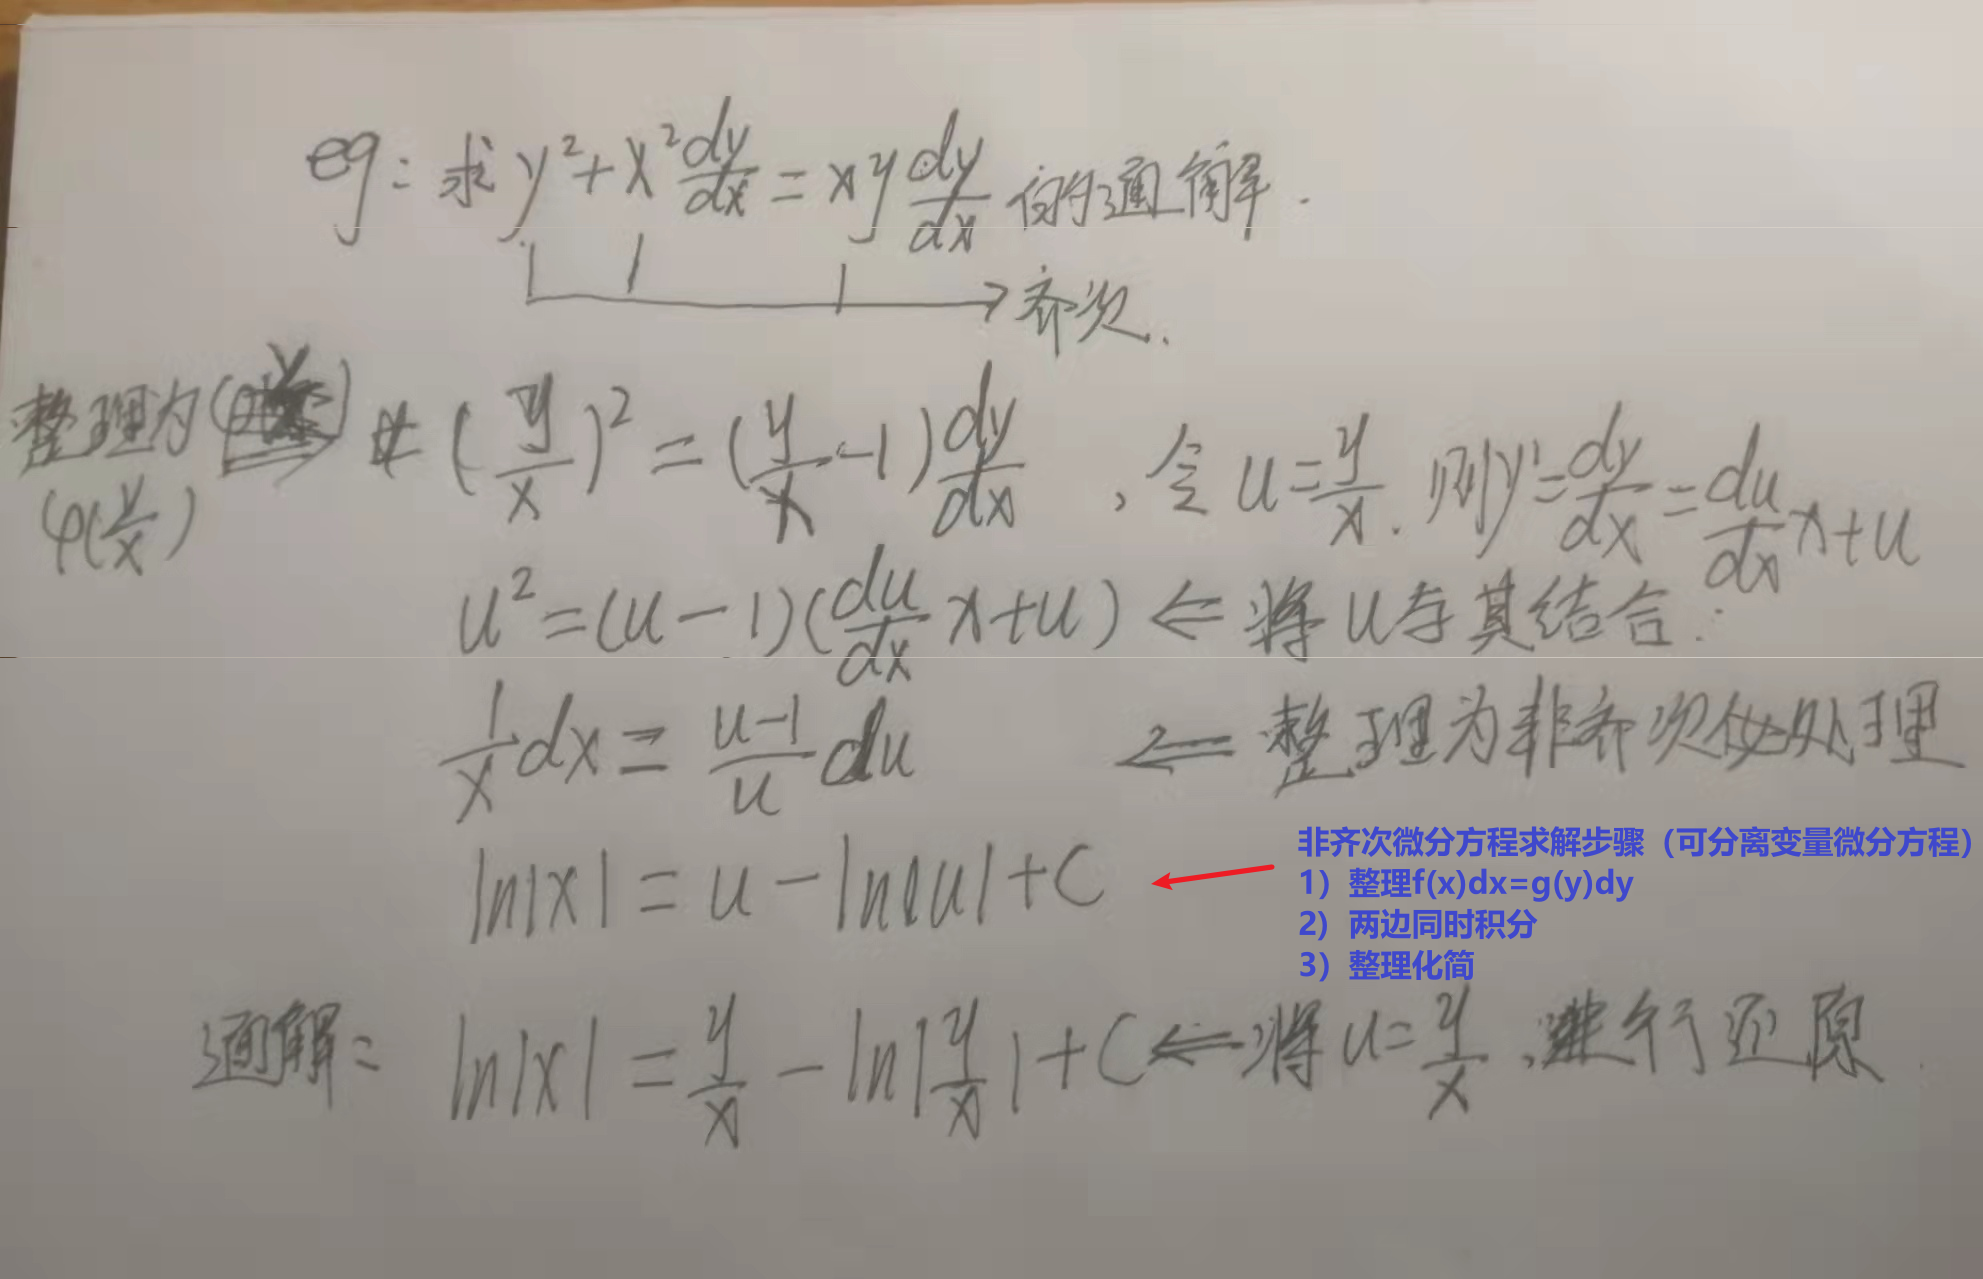 eg: 求 y²+x² dy/dx = xy dy/dx 的通解.
齐次.
整理为
φ(y/x)
(y/x)² = (y/x -1) dy/dx , 令 u = y/x . 则 y' = dy/dx = du/dx x+u
u² = (u-1)(du/dx x+u) ⇐ 将u与其结合.
1/x dx = u-1/u du ⇐ 整理为非齐次 处理
ln|x| = u - ln|u| + C
非齐次微分方程求解步骤（可分离变量微分方程）
1）整理f(x)dx=g(y)dy
2）两边同时积分
3）整理化简
通解: ln|x| = y/x - ln|y/x| + C ⇐ 将 u = y/x , 进行还原